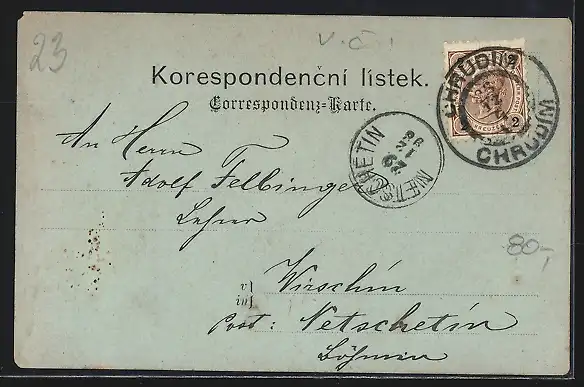 23
V.Č.
Korespondenční lístek.
Correspondenz-Karte.
CHRUDIM
CHRUDIM
2
2
KREUZER
NETSCHETIN
An Herrn
Adolf Felbinger
Lehrer
80,-
v
in
Wirschin
Post: Netschetin
Böhmen